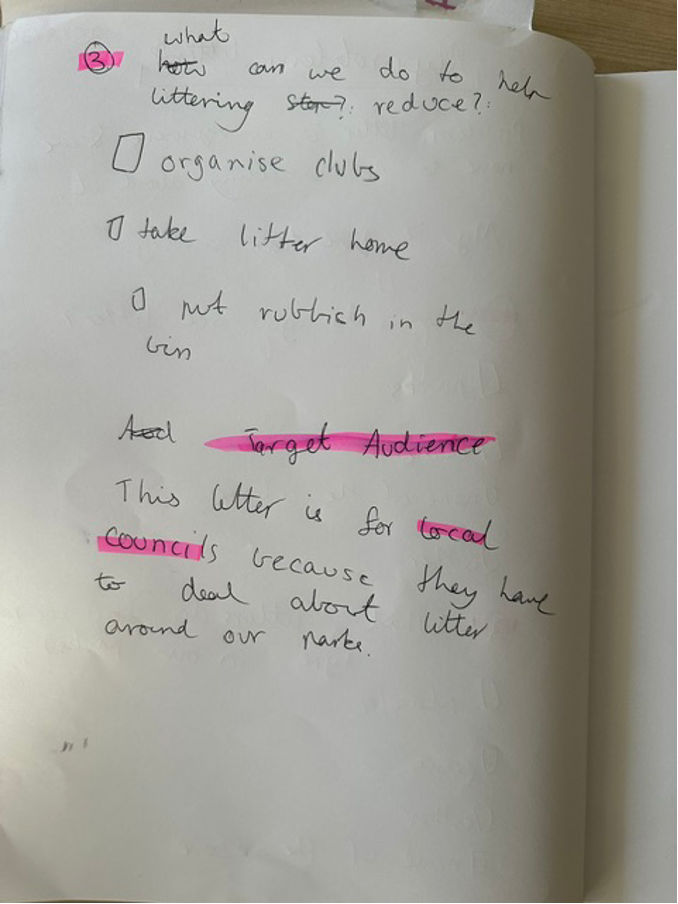 ③ what
how can we do to help
littering stop?: reduce?:
organise clubs
take litter home
put rubbich in the
bin
And Target Audience
This letter is for local
councils because they have
to deal about litter
around our parks.